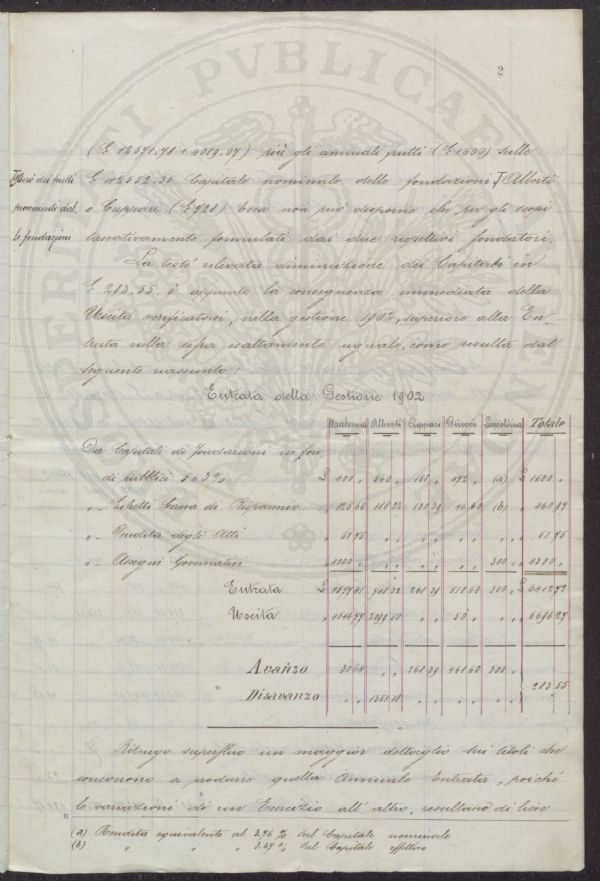 PROSPERITATI PVBLICAE
2
(£ 12571.78 + 4019.07) più gli annuali frutti (£ 1600) sulle
£ 42552.36 Capitale nominale delle fondazioni Alberti
Però dei frutti
provenienti dal
le fondazioni
e Cuppari (£ 828) Essa non può disporne che per gli scopi
tassativamente formulati dai due fondatori.
La testè rilevata diminuzione dei Capitali in
£ 283.55 è appunto la conseguenza immediata della
Uscita verificatasi, nella gestione 1902, superiore alla En-
trata nella cifra esattamente uguale, come resulta dal
seguente riassunto:
Entrata della Gestione 1902
Accademia Alberti Cuppari Ginori Totale
Da Capitali di fondazioni in fon
di pubblici 5 e 3% £ 660 " 161 " 472 " (a) £ 1600 "
"- Libretti Cassa di Risparmio 125 66 188 32 100 39 46 60 (b) " 460 97
"- Vendita degli Atti " 51 75 " " " " 51 75
"- Assegni Governativi 300 " 4300 "
Entrata £ 848 32 261 39 518 60 300 " £ 6412 72
Uscita " 2199 50 " " 50 " " 6696 27
Avanzo 30 64 " " 261 39 468 60 300 "
Disavanzo " " 1351 18 " " " " 283 55
Ritengo superfluo un maggior dettaglio sui titoli che
concorrono a produrre quella annuale Entrata, poiché
le variazioni di un Esercizio all'altro, resultano di lieve
(a) Rendita equivalente al 3.76 % sul Capitale nominale
(b) " " " 3.69 % sul Capitale effettivo